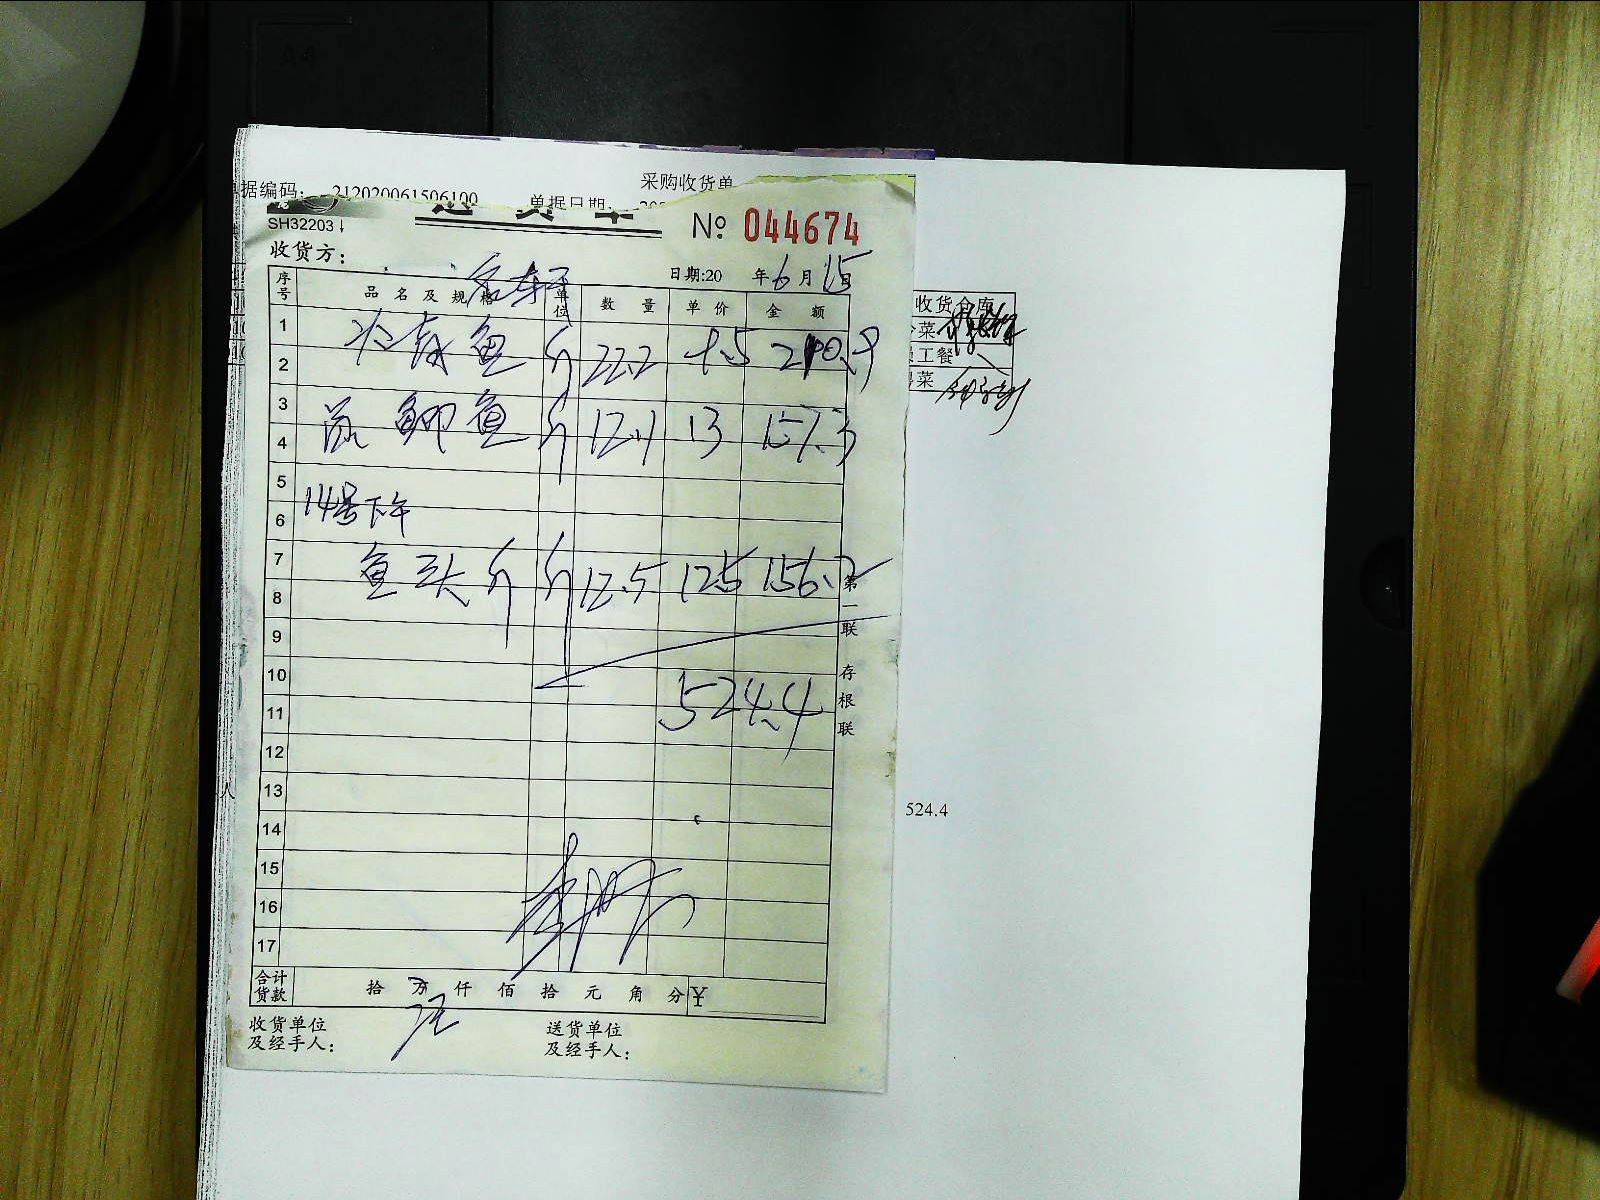 采购收货单
据编码: 212020061506100 单据日期:
SH32203
№ 044674
收货方:
日期:20 年6月15日
序号 品名及规格 单位 数量 单价 金额
1
鱼 斤 22.2 9.5 210.9
2
3
鲫鱼 斤 12.1 13 157.3
4
5
14号下午
6
7
鱼头 斤 斤 12.5 12.5 156.2
8
9
10
524.4
11
12
13
14
15
16
17
合计货款 拾 万 仟 佰 拾 元 角 分 ¥
收货单位及经手人:
送货单位及经手人:
第一联 存根联
收货仓库
菜
工餐
菜
524.4
人